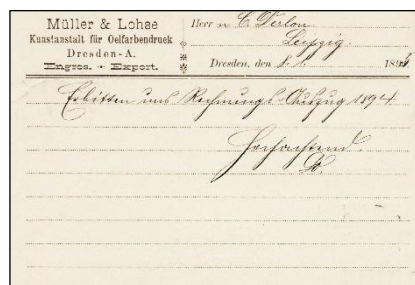 Müller & Lohse
Kunstanstalt für Oelfarbendruck
Dresden-A.
Engros. + Export.
Herrn C. Derlon
Leipzig.
Dresden, den 8. 1. 189
Erbitten uns Rechnungs-Auszug 1894
Hochachtend.